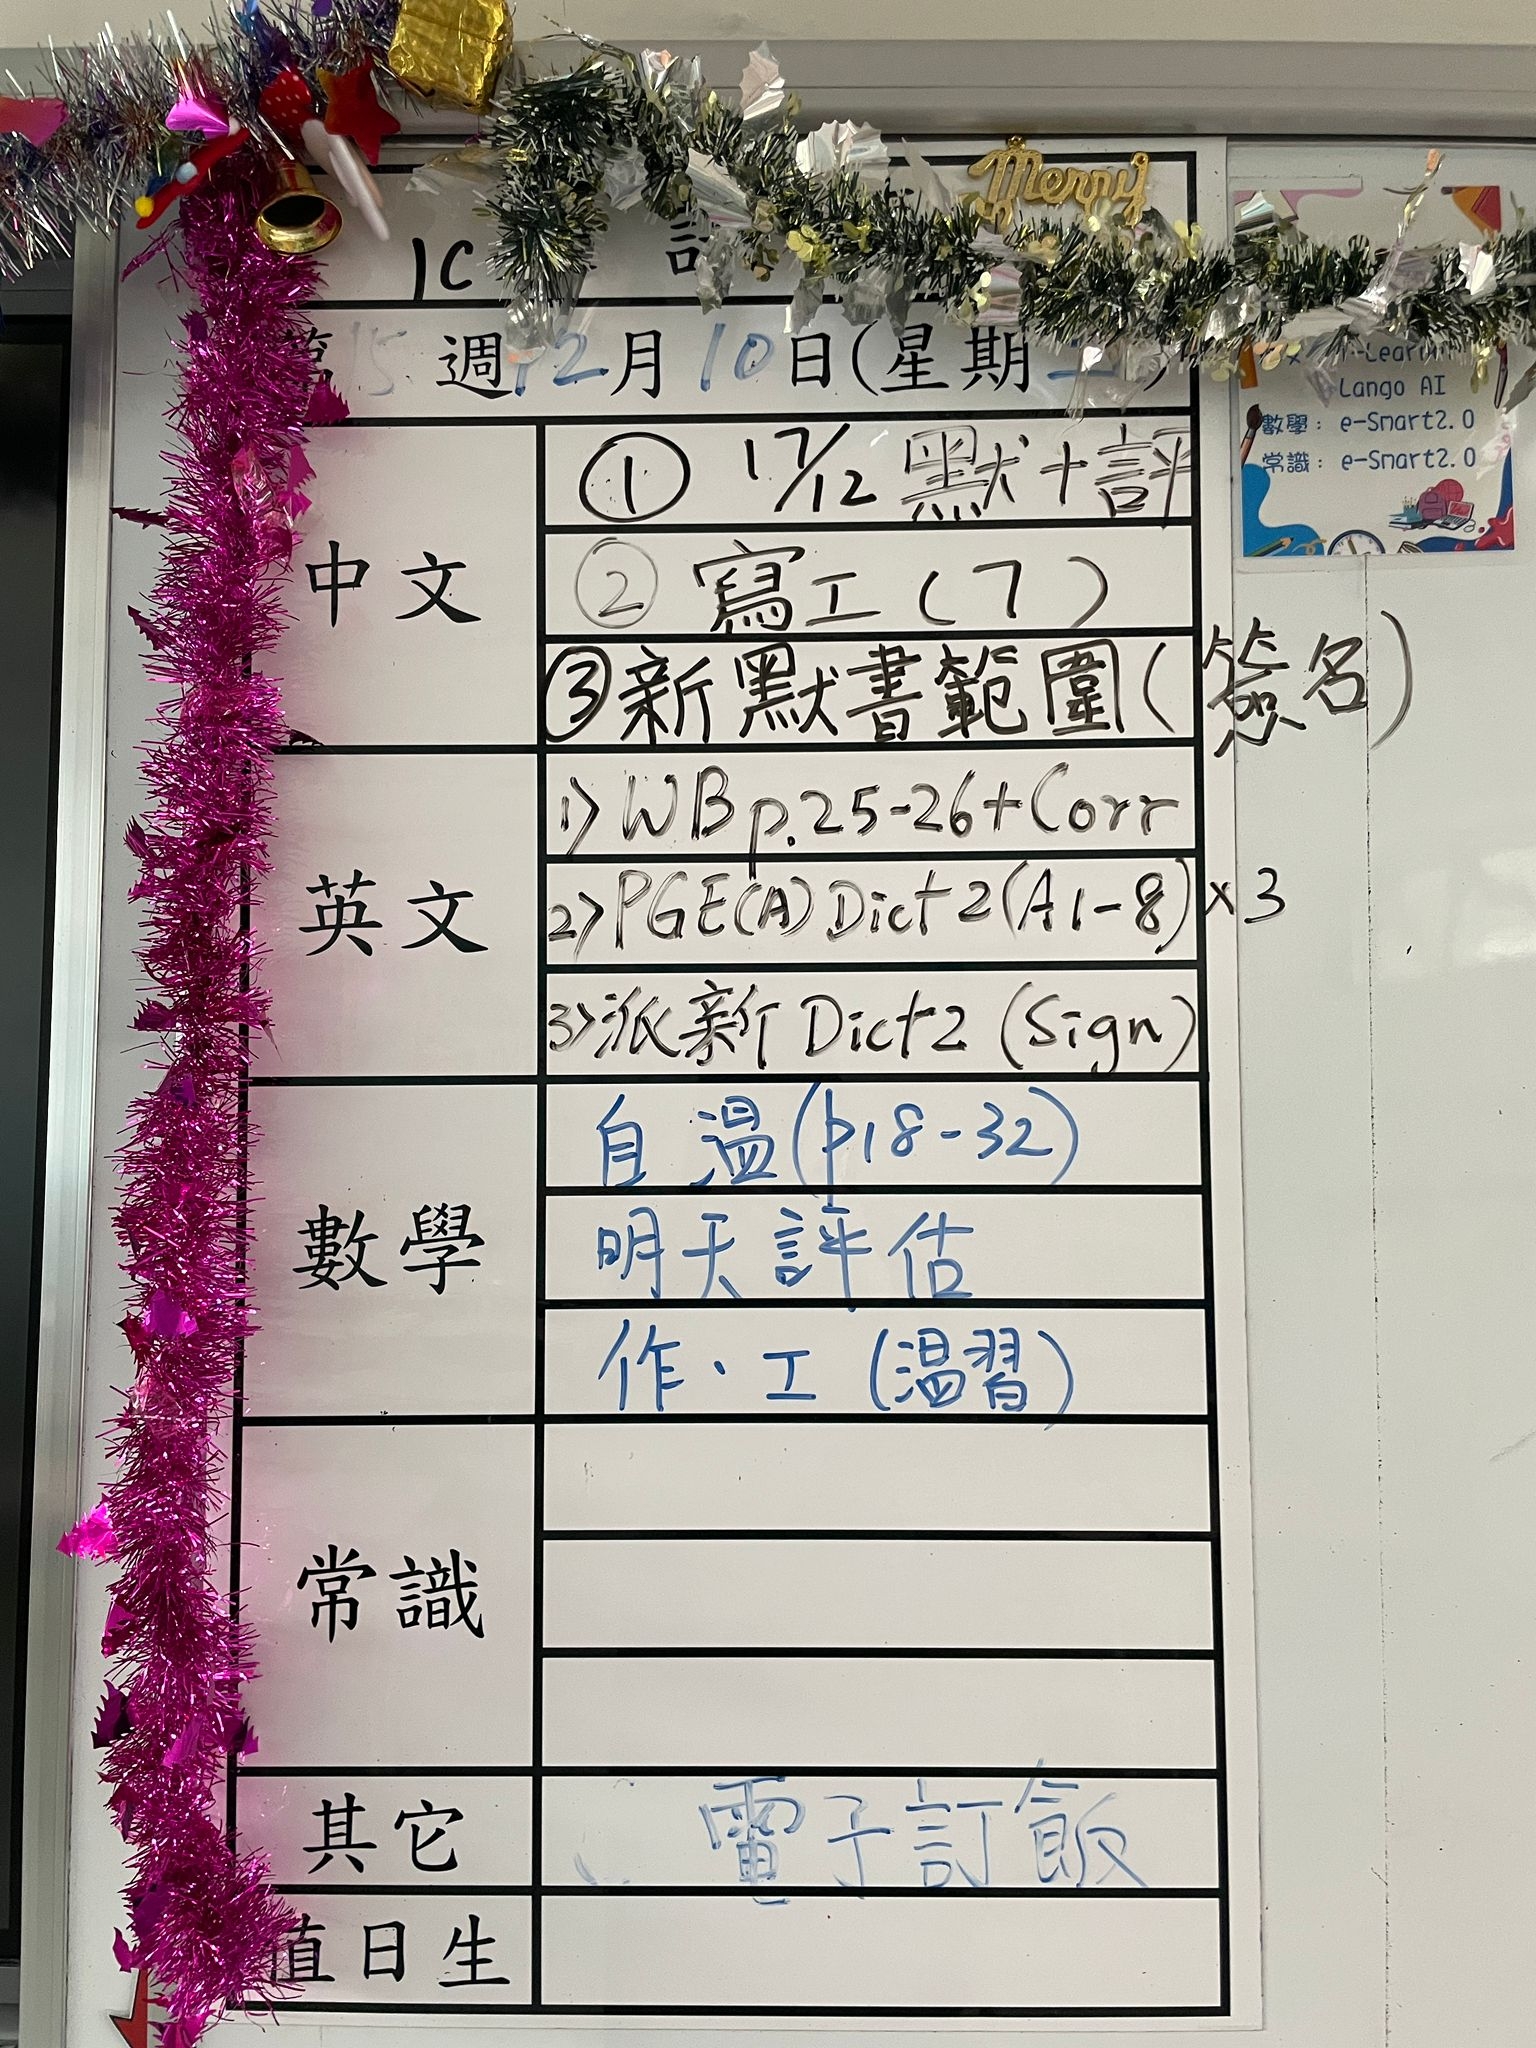 Merry
1C
第15週12月10日(星期三)
中文
① 17/12 默+評
② 寫工(7)
③新默書範圍(簽名)
英文
1) WB p.25-26+Corr
2) PGE(A) Dict 2 (A1-8) x3
3) 派新 Dict 2 (Sign)
數學
自溫(p18-32)
明天評估
作、工(溫習)
常識
其它
電子訂飯
值日生
Lango AI
數學: e-Smart2.0
常識: e-Smart2.0